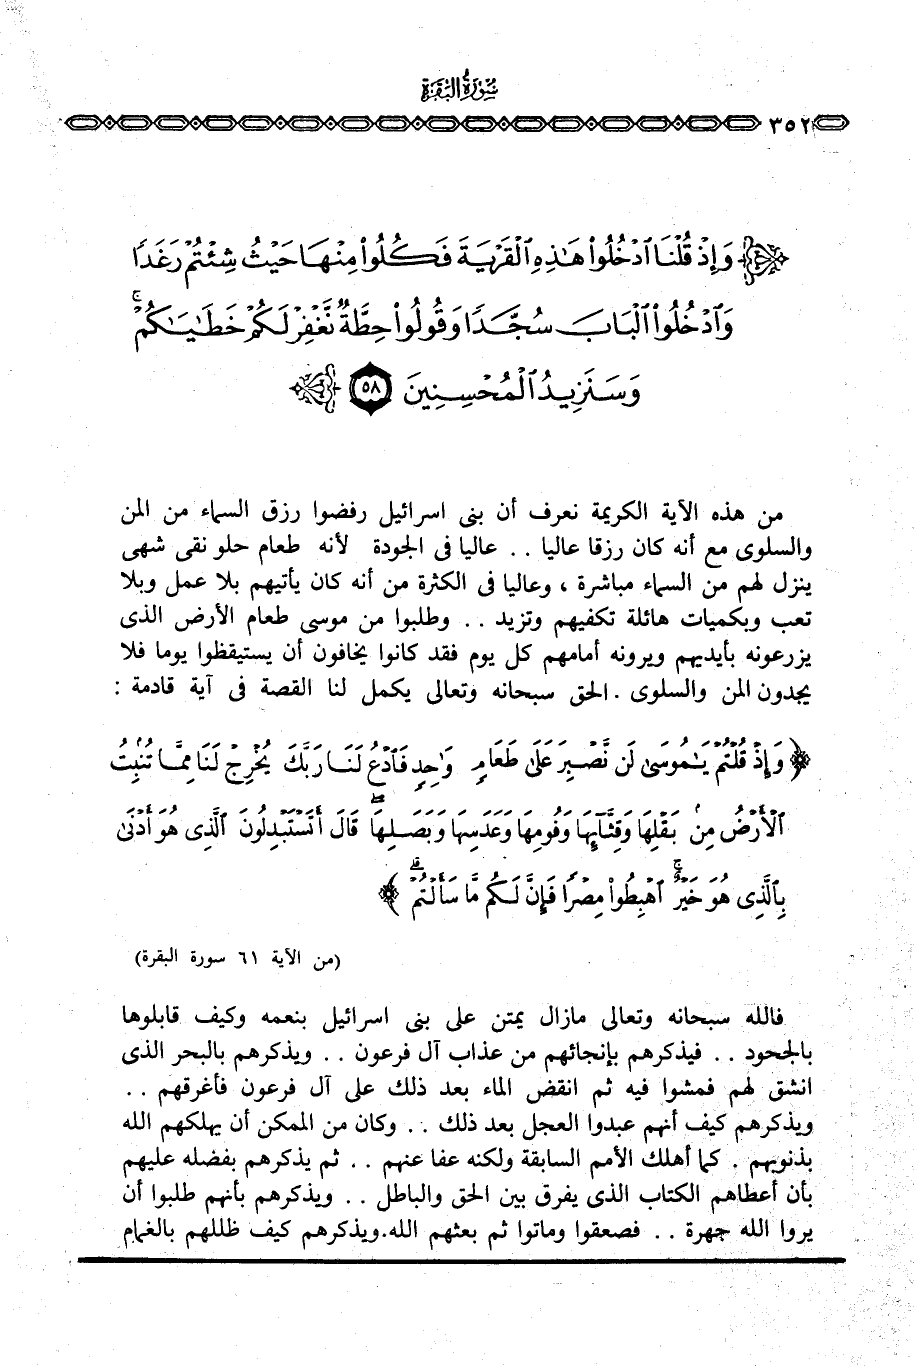 سورة البقرة
٣٥٢
﴿ وَإِذْ قُلْنَا ٱدْخُلُوا۟ هَـٰذِهِ ٱلْقَرْيَةَ فَكُلُوا۟ مِنْهَا حَيْثُ شِئْتُمْ رَغَدًا
وَٱدْخُلُوا۟ ٱلْبَابَ سُجَّدًا وَقُولُوا۟ حِطَّةٌ نَّغْفِرْ لَكُمْ خَطَـٰيَـٰكُمْ ۚ
وَسَنَزِيدُ ٱلْمُحْسِنِينَ ٥٨ ﴾
من هذه الآية الكريمة نعرف أن بنى اسرائيل رفضوا رزق السماء من المن
والسلوى مع أنه كان رزقا عاليا . . عاليا فى الجودة لأنه طعام حلو نقى شهى
ينزل لهم من السماء مباشرة ، وعاليا فى الكثرة من أنه كان يأتيهم بلا عمل وبلا
تعب وبكميات هائلة تكفيهم وتزيد . . وطلبوا من موسى طعام الأرض الذى
يزرعونه بأيديهم ويرونه أمامهم كل يوم فقد كانوا يخافون أن يستيقظوا يوما فلا
يجدون المن والسلوى . الحق سبحانه وتعالى يكمل لنا القصة فى آية قادمة :
﴿ وَإِذْ قُلْتُمْ يَـٰمُوسَىٰ لَن نَّصْبِرَ عَلَىٰ طَعَامٍ وَٰحِدٍ فَٱدْعُ لَنَا رَبَّكَ يُخْرِجْ لَنَا مِمَّا تُنۢبِتُ
ٱلْأَرْضُ مِنۢ بَقْلِهَا وَقِثَّآئِهَا وَفُومِهَا وَعَدَسِهَا وَبَصَلِهَا ۖ قَالَ أَتَسْتَبْدِلُونَ ٱلَّذِى هُوَ أَدْنَىٰ
بِٱلَّذِى هُوَ خَيْرٌ ۚ ٱهْبِطُوا۟ مِصْرًا فَإِنَّ لَكُم مَّا سَأَلْتُمْ ۗ ﴾
(من الآية ٦١ سورة البقرة)
فالله سبحانه وتعالى مازال يمتن على بنى اسرائيل بنعمه وكيف قابلوها
بالجحود . . فيذكرهم بإنجائهم من عذاب آل فرعون . . ويذكرهم بالبحر الذى
انشق لهم فمشوا فيه ثم انقض الماء بعد ذلك على آل فرعون فأغرقهم . .
ويذكرهم كيف أنهم عبدوا العجل بعد ذلك . . وكان من الممكن أن يهلكهم الله
بذنوبهم . كما أهلك الأمم السابقة ولكنه عفا عنهم . . ثم يذكرهم بفضله عليهم
بأن أعطاهم الكتاب الذى يفرق بين الحق والباطل . . ويذكرهم بأنهم طلبوا أن
يروا الله جهرة . . فصعقوا وماتوا ثم بعثهم الله.ويذكرهم كيف ظللهم بالغمام